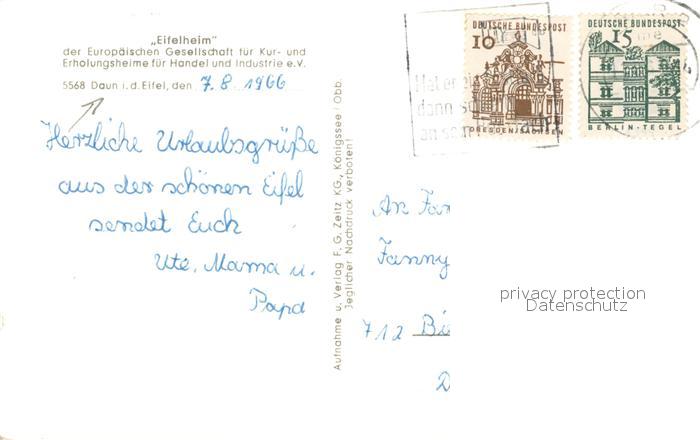 „Eifelheim"
der Europäischen Gesellschaft für Kur- und
Erholungsheime für Handel und Industrie e.V.
5568 Daun i. d. Eifel, den 7.8.1966
Herzliche Urlaubsgrüße
aus der schönen Eifel
sendet Euch
Ute, Mama u.
Papa
Aufnahme u. Verlag F. G. Zeitz KG., Königssee / Obb.
Jeglicher Nachdruck verboten!
DEUTSCHE BUNDESPOST
10
DRESDEN/SACHSEN
DEUTSCHE BUNDESPOST
15
BERLIN-TEGEL
An Fam
Fanny
712 Bi
D
privacy protection
Datenschutz